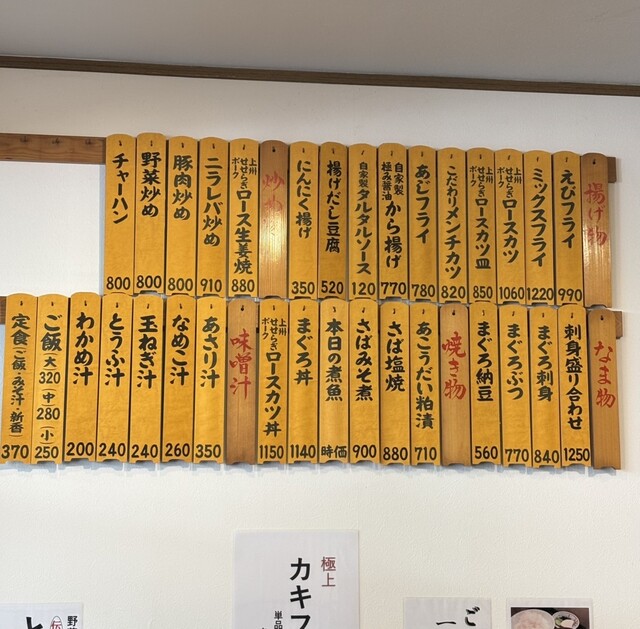 揚げ物
えびフライ 990
ミックスフライ 1220
上州せせらぎポーク ロースカツ 1060
上州せせらぎポーク ロースカツ皿 850
こだわりメンチカツ 820
あじフライ 780
自家製極み醤油 から揚げ 770
自家製 タルタルソース 120
揚げだし豆腐 520
にんにく揚げ 350
炒め物
上州せせらぎポーク ロース生姜焼 880
ニラレバ炒め 910
豚肉炒め 800
野菜炒め 800
チャーハン 800
なま物
刺身盛り合わせ 1250
まぐろ刺身 840
まぐろぶつ 770
まぐろ納豆 560
焼き物
あこうだい粕漬 710
さば塩焼 880
さばみそ煮 900
本日の煮魚 時価
まぐろ丼 1140
上州せせらぎポーク ロースカツ丼 1150
味噌汁
あさり汁 350
なめこ汁 260
玉ねぎ汁 240
とうふ汁 240
わかめ汁 200
ご飯 (大) 320 (中) 280 (小) 250
定食(ご飯・みそ汁・新香) 370
極上
カキフ
単品
ご
一
野菜
と